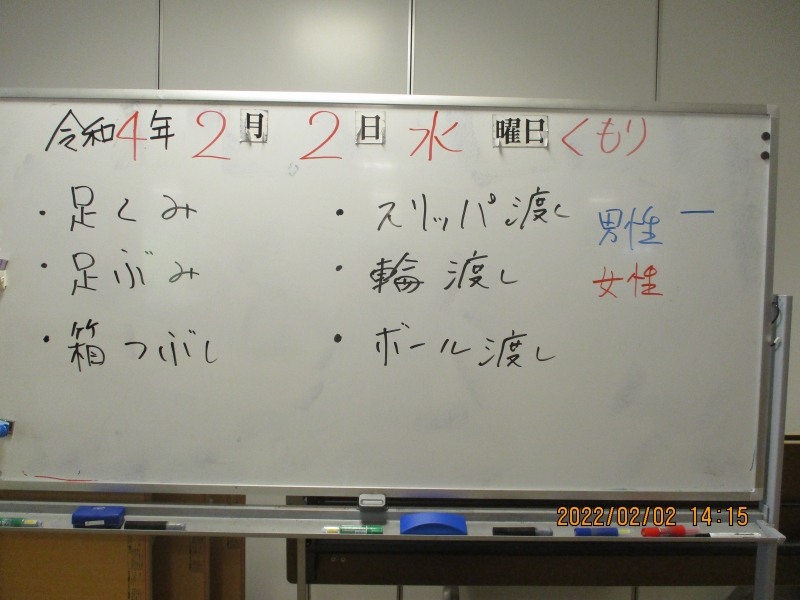 令和4年 2月 2日 水曜日 くもり
・足くみ
・足ぶみ
・箱つぶし
・スリッパ渡し
・輪渡し
・ボール渡し
男性 一
女性
2022/02/02 14:15